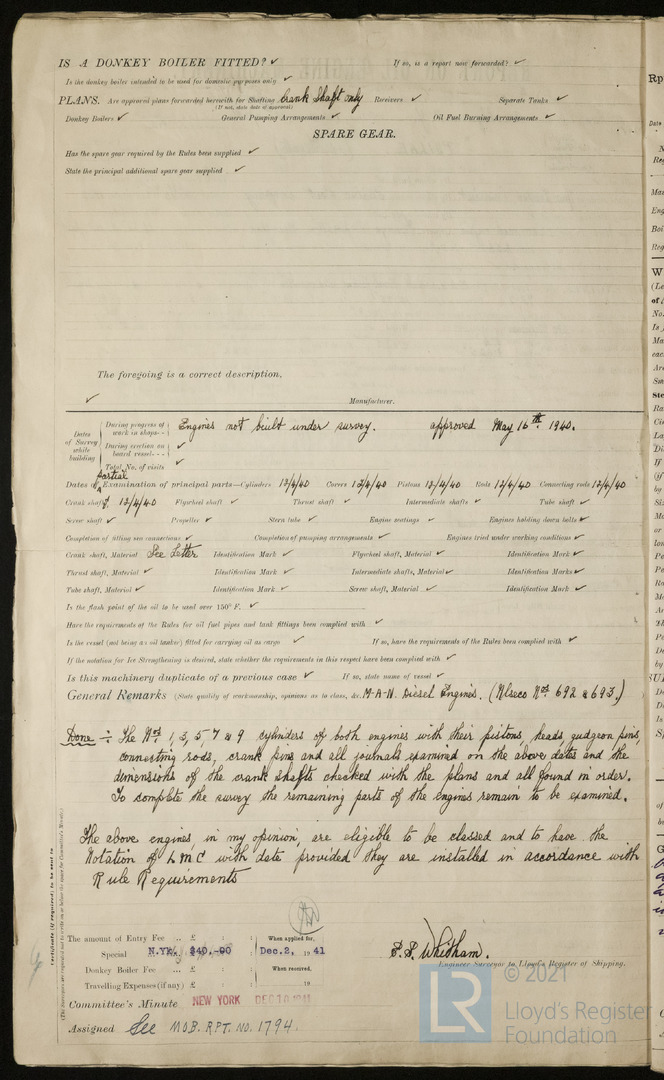 IS A DONKEY BOILER FITTED? ✓ If so, is a report now forwarded? ✓
Is the donkey boiler intended to be used for domestic purposes only ✓
PLANS. Are approved plans forwarded herewith for Shafting Crank Shaft only Receivers ✓ Separate Tanks ✓
(If not, state date of approval)
Donkey Boilers ✓ General Pumping Arrangements ✓ Oil Fuel Burning Arrangements ✓
SPARE GEAR.
Has the spare gear required by the Rules been supplied ✓
State the principal additional spare gear supplied ✓
The foregoing is a correct description,
✓ Manufacturer.
Dates of Survey while building
During progress of work in shops - - Engines not built under survey. approved May 16th. 1940.
During erection on board vessel - - - ✓
Total No. of visits ✓
Dates of partial Examination of principal parts—Cylinders 12/4/40 Covers 12/4/40 Pistons 12/4/40 Rods 12/4/40 Connecting rods 12/4/40
Crank shaft 12/4/40 Flywheel shaft ✓ Thrust shaft ✓ Intermediate shafts ✓ Tube shaft ✓
Screw shaft ✓ Propeller ✓ Stern tube ✓ Engine seatings ✓ Engines holding down bolts ✓
Completion of fitting sea connections ✓ Completion of pumping arrangements ✓ Engines tried under working conditions ✓
Crank shaft, Material See Letter Identification Mark ✓ Flywheel shaft, Material ✓ Identification Mark ✓
Thrust shaft, Material ✓ Identification Mark ✓ Intermediate shafts, Material ✓ Identification Marks ✓
Tube shaft, Material ✓ Identification Mark ✓ Screw shaft, Material ✓ Identification Mark ✓
Is the flash point of the oil to be used over 150° F. ✓
Have the requirements of the Rules for oil fuel pipes and tank fittings been complied with ✓
Is the vessel (not being an oil tanker) fitted for carrying oil as cargo ✓ If so, have the requirements of the Rules been complied with ✓
If the notation for Ice Strengthening is desired, state whether the requirements in this respect have been complied with ✓
Is this machinery duplicate of a previous case ✓ If so, state name of vessel ✓
General Remarks (State quality of workmanship, opinions as to class, &c. M-A-N. Diesel Engines. (Nlseco Nos. 692 & 693.)
Done ÷ The Nos 1, 3, 5, 7 & 9 cylinders of both engines with their pistons, heads, gudgeon pins,
connecting rods, crank pins and all journals examined on the above dates and the
dimensions of the crank shafts checked with the plans and all found in order.
To complete the survey the remaining parts of the engines remain to be examined.
The above engines, in my opinion, are eligible to be classed and to have the
Notation of L M C with date provided they are installed in accordance with
Rule Requirements
Certificate (if required) to be sent to
(The Surveyors are requested not to write on or below the space for Committee's Minute.)
The amount of Entry Fee .. £ : : When applied for,
Special N.Yk. $40.-00 : Dec.2, 19 41
Donkey Boiler Fee ... £ : : When received,
Travelling Expenses (if any) £ : : 19
Engineer Surveyor to Lloyd's Register of Shipping.
Committee's Minute NEW YORK DEC 10 1941
Assigned See MOB. RPT. NO. 1794.
LR
© 2021
Lloyd's Register
Foundation